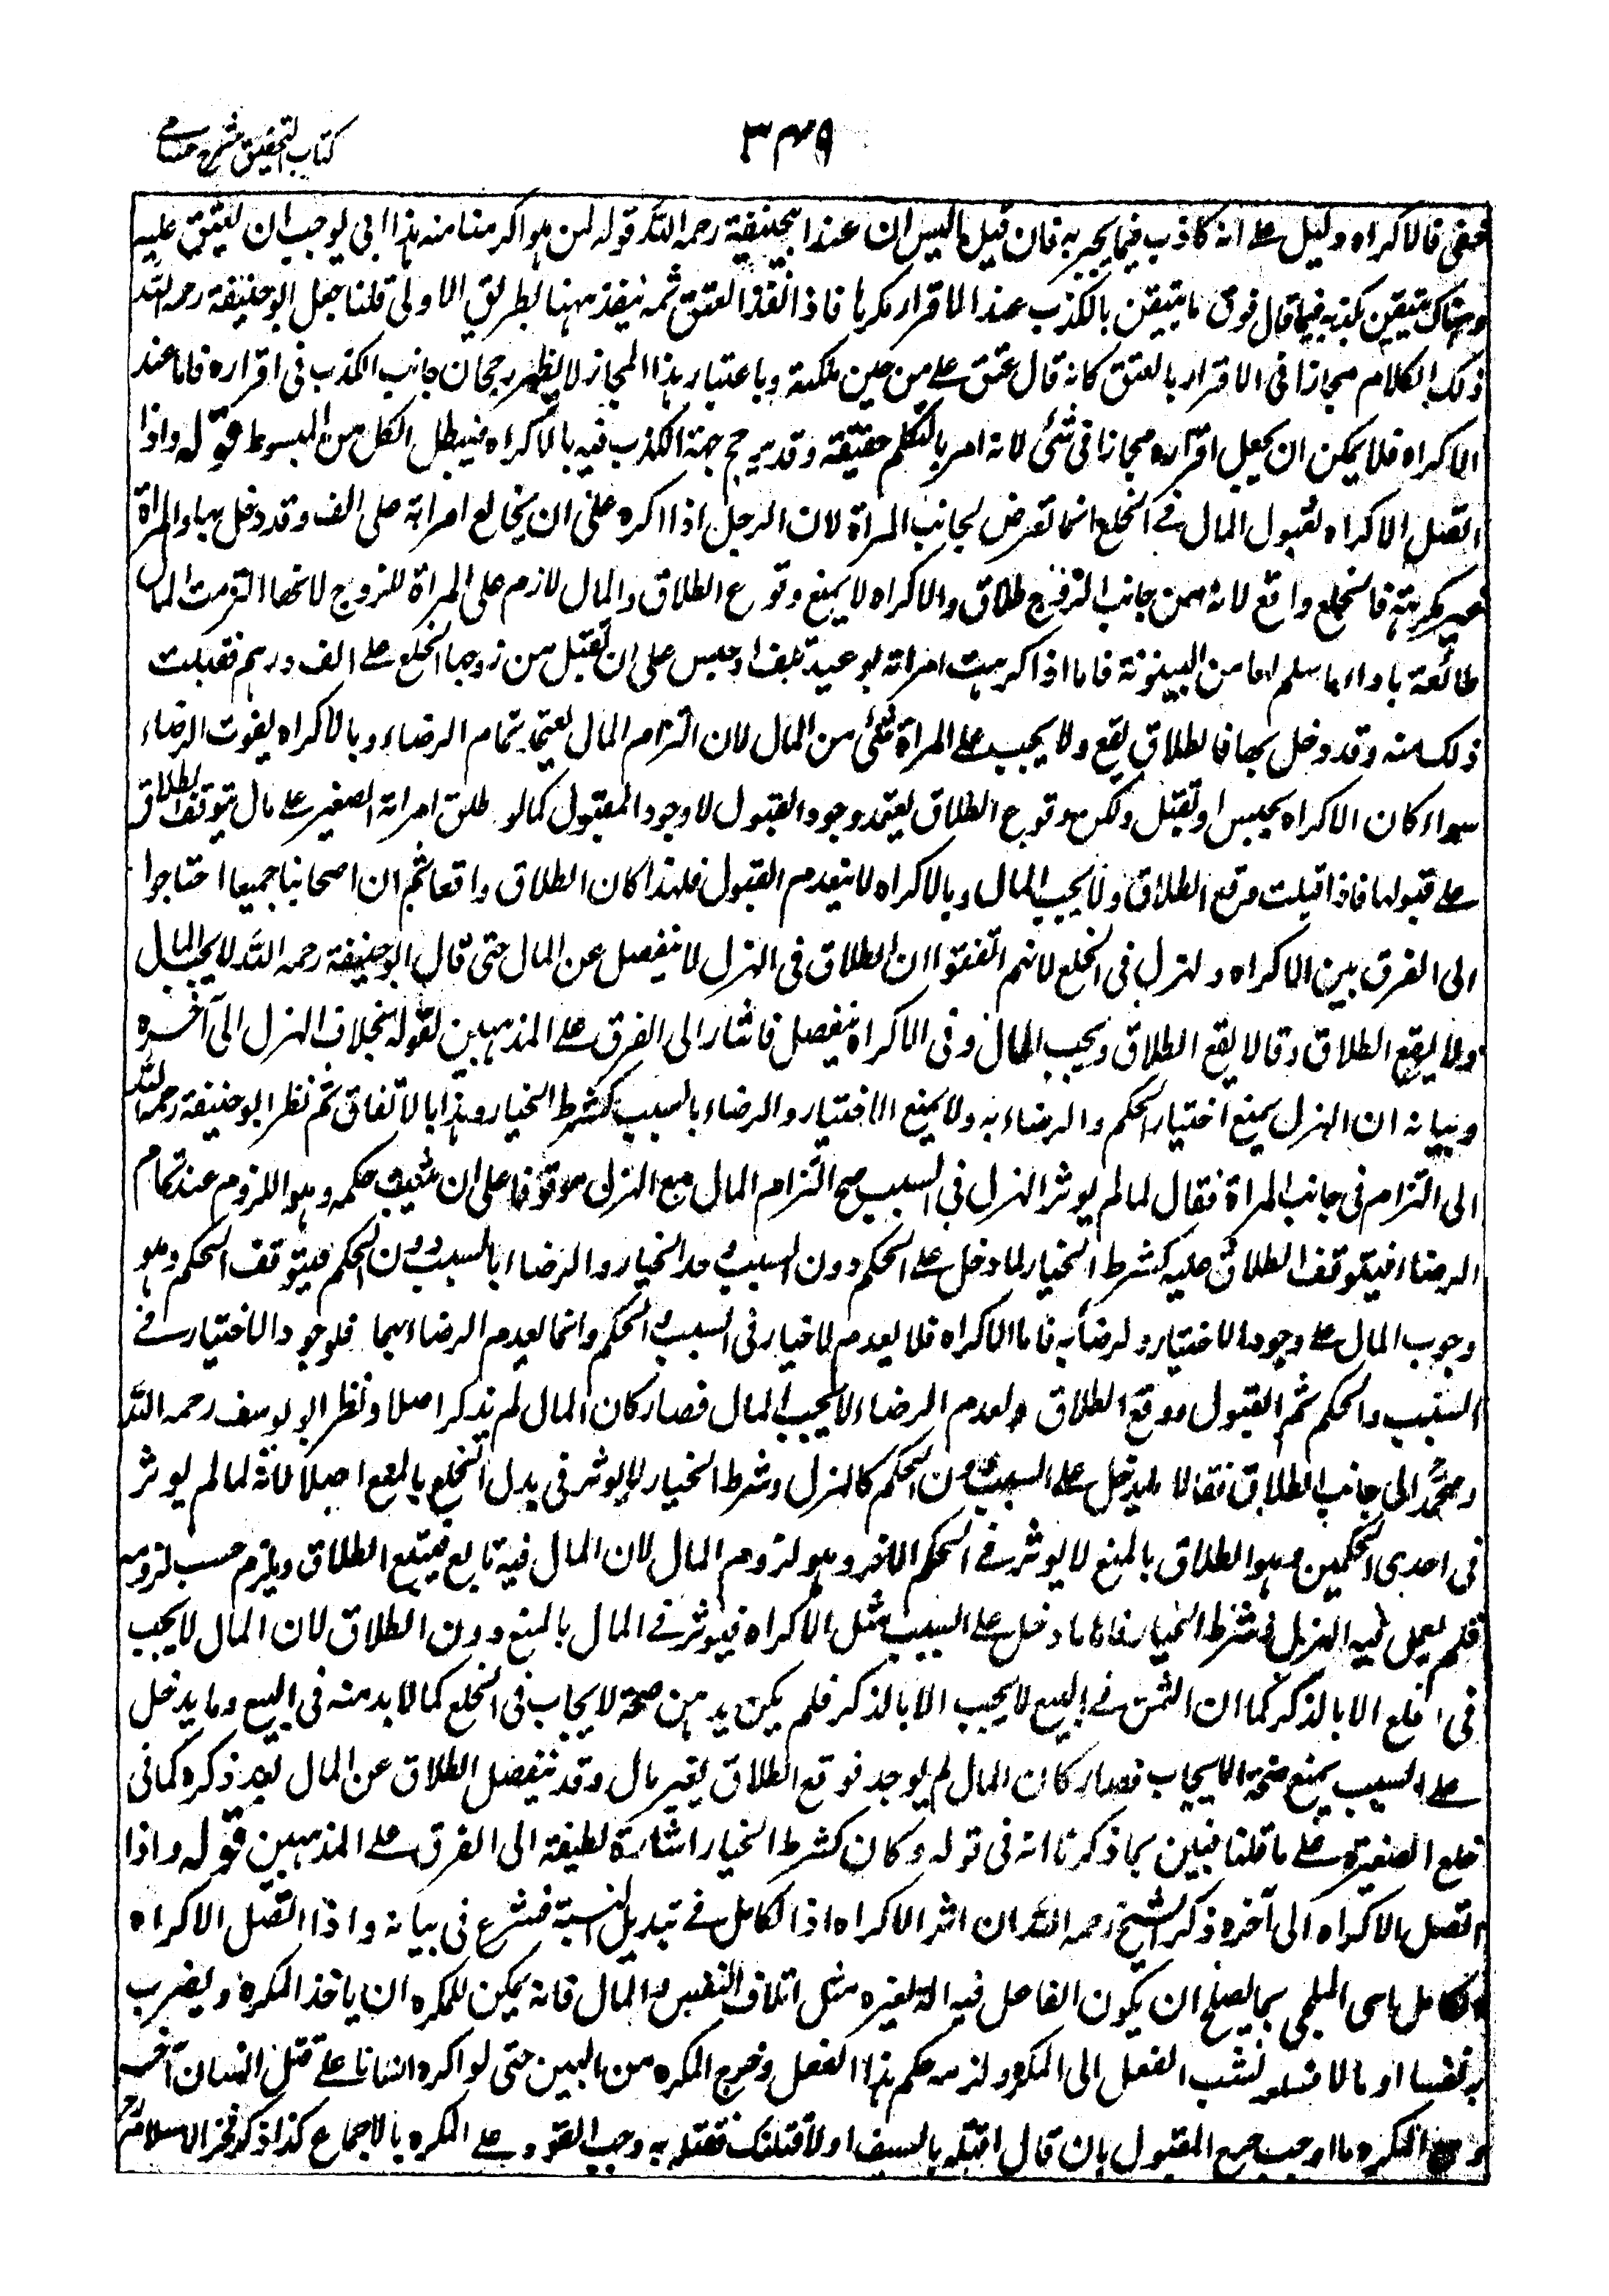 كتاب التحقيق شرح حسامي
٣٤٩
خفي فالاكراه دليل على انه كاذب فيما يجبر به فان قيل اليس ان عند ابيحنيفة رحمه الله قوله لمن هو اكبر منا منه هذا ابني يوجب ان يعتق عليه
وهناك يتيقن بكذبه فيما قال فوق ما يتيقن بالكذب عند الاقرار مكرها فاذا نفذ العتق ثمه ينفذ ههنا بطريق الاولى قلنا جعل ابو حنيفة رحمه الله
ذلك الكلام مجازا في الاقرار بالعتق كانه قال عتق على من حين ملكته وباعتبار هذا المجاز لا يظهر رجحان جانب الكذب في اقراره فاما عند
الاكراه فلا يمكن ان يجعل اقراره مجازا في شئ لانه امر بالتكلم حقيقة وقد يرجح جهة الكذب فيه بالاكراه فيبطل الكل من المبسوط قوله واذا
اتصل الاكراه لقبول المال في الخلع انما تعرض لجانب المراة لان الرجل اذا اكره على ان يخالع امراته على الف وقد دخل بها والمراة
غير مكرهة فالخلع واقع لانه من جانب الزوج طلاق والاكراه لا يمنع وقوع الطلاق والمال لازم على المراة للزوج لانها التزمت المال
طائعة بازاء ما سلم لها من البينونة فاما اذا اكرهت امراته بوعيد تلف او حبس على ان تقبل من زوجها الخلع على الف درهم فقبلت
ذلك منه وقد دخل بها فالطلاق يقع ولا يجب على المراة شئ من المال لان التزام المال يعتمد تمام الرضاء وبالاكراه يفوت الرضاء
سواء كان الاكراه بحبس او بقتل ولكن وقوع الطلاق يعتمد وجود القبول لا وجود المقبول كما لو طلق امراته الصغير على مال يتوقف الطلاق
على قبولها فاذا قبلت وقع الطلاق ولا يجب المال وبالاكراه لا ينعدم القبول فلهذا كان الطلاق واقعا ثم ان اصحابنا جميعا احتاجوا
الى الفرق بين الاكراه والهزل في الخلع لانهم اتفقوا ان الطلاق في الهزل لا ينفصل عن المال حتى قال ابو حنيفة رحمه الله لا يجب المال
ولا يقع الطلاق وقالا يقع الطلاق ويجب المال وفي الاكراه ينفصل فاشار الى الفرق على المذهبين بقوله بخلاف الهزل الى آخره
وبيانه ان الهزل يمنع اختيار الحكم والرضاء به ولا يمنع الاختيار والرضاء بالسبب كشرط الخيار وهذا بالاتفاق ثم نظر ابو حنيفة رحمه الله
الى التزام في جانب المراة فقال لما لم يوثر الهزل في السبب صح التزام المال مع الهزل موقوفا على ان يثبت حكمه وهو اللزوم عند تمام
الرضاء فيتوقف الطلاق عليه كشرط الخيار لما دخل على الحكم دون السبب وجد الخيار والرضاء بالسبب دون الحكم فيتوقف الحكم وهو
وجوب المال على وجود الاختيار والرضاء به فاما الاكراه فلا يعدم الاختيار في السبب والحكم وانما يعدم الرضاء بهما فلوجود الاختيار في
السبب والحكم ثم القبول ووقع الطلاق ولعدم الرضاء لا يجب المال فصار كان المال لم يذكر اصلا ونظر ابو يوسف رحمه الله
ومحمد الى جانب الطلاق فقالا ما يدخل على السبب دون الحكم كالهزل وشرط الخيار لا يوثر في بدل الخلع بالمنع اصلا لانه لما لم يوثر
في احدى الحكمين وهو الطلاق بالمنع لا يوثر في الحكم الاخر وهو لزوم المال لان المال فيه تابع فيتبع الطلاق ويلزم حسب لزومه
فلم يعمل فيه الهزل وشرط الخيار فاما ما دخل على السبب مثل الاكراه فيوثر في المال بالمنع دون الطلاق لان المال لا يجب
في الخلع الا بالذكر كما ان الثمن في البيع لا يجب الا بالذكر فلم يكن بد من صحة الايجاب في الخلع كما لا بد منه في البيع وما يدخل
على السبب يمنع صحة الايجاب فصار كان المال لم يوجد فوقع الطلاق بغير مال وقد ينفصل الطلاق عن المال بعد ذكره كما في
خلع الصغيرة على ما قلنا فبين بما ذكرنا انه في قوله وكان كشرط الخيار اشارة لطيفة الى الفرق على المذهبين قوله واذا
اتصل الاكراه الى آخره ذكر الشيخ رحمه الله ان اثر الاكراه اذا تكامل في تبديل النسبة فشرع في بيانه واذا اتصل الاكراه
الكامل اى الملجي بما يصلح ان يكون الفاعل فيه الة لغيره مثل اتلاف النفس والمال فانه يمكن للمكره ان ياخذ المكره ويضرب
به نفسا او مالا فيتلفه نسب الفعل الى المكره ولزمه حكم هذا الفعل وخرج المكره من البين حتى لو اكره انسانا على قتل انسان آخر
المكره ما اوجب جرح المقبول بان قال اقتله بالسيف او لاقتلنك فقتله به وجب القود على المكره بالاجماع كذا ذكر فخر الاسلام رح